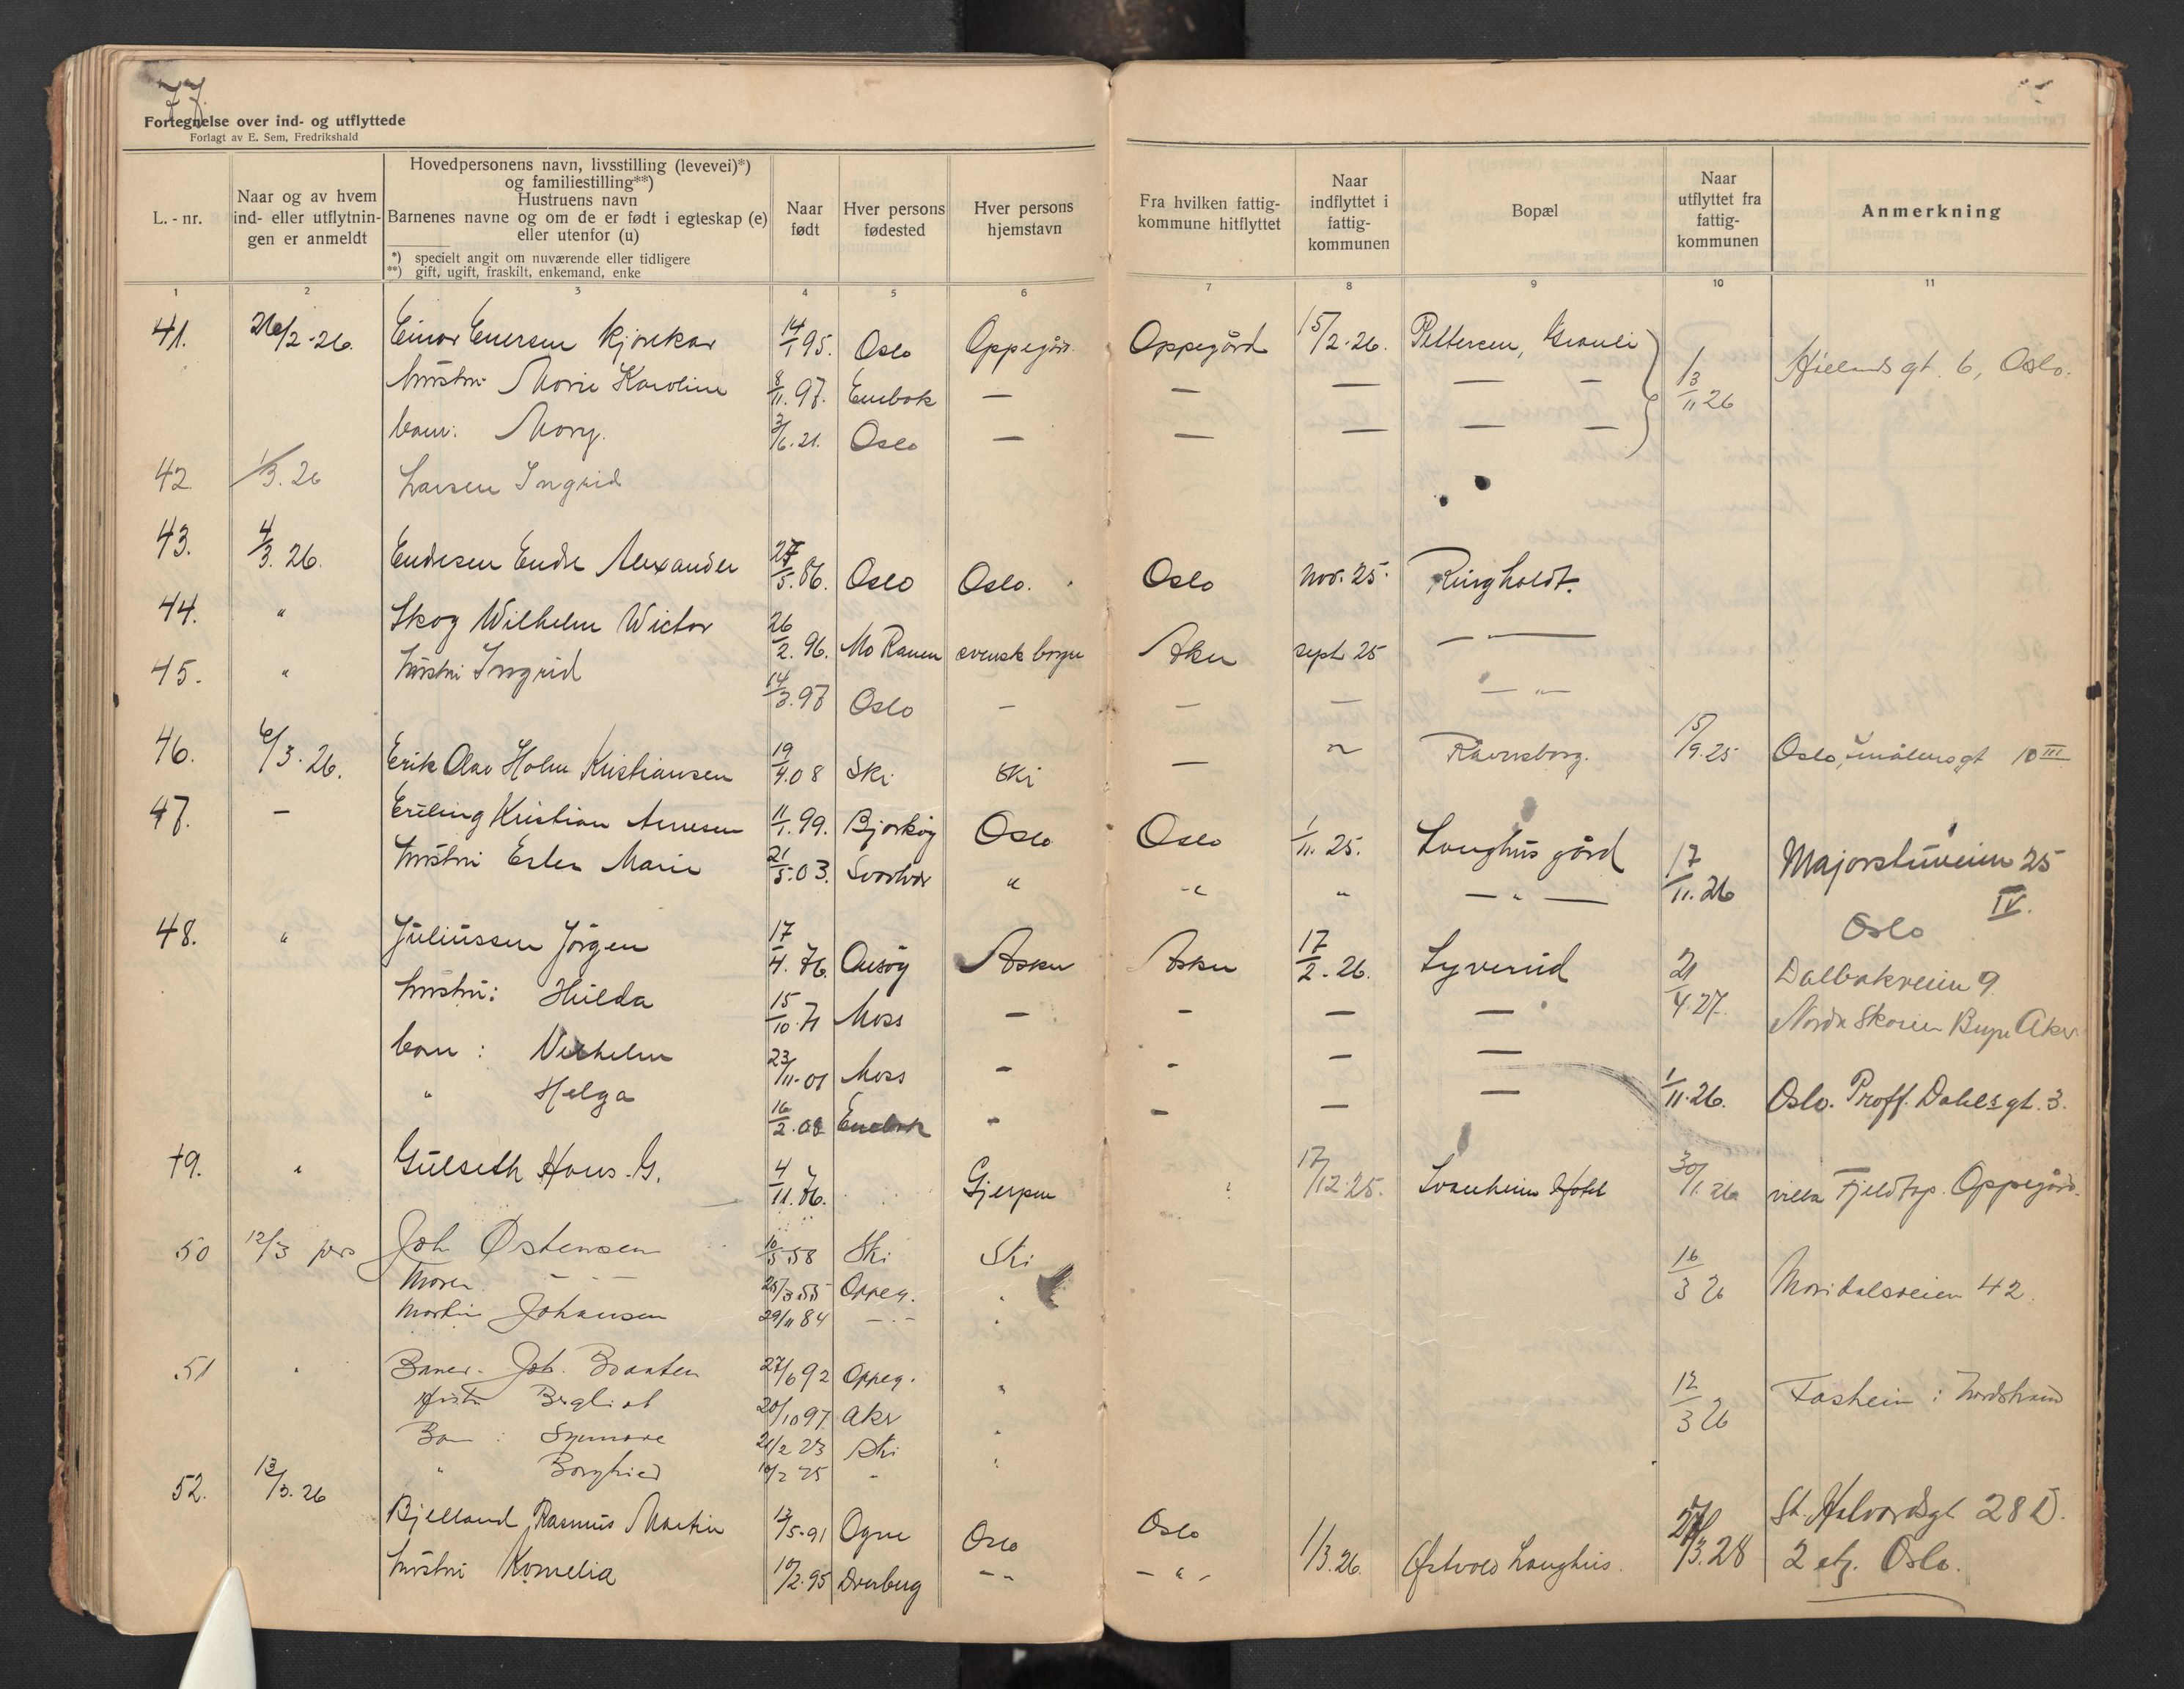 77
Fortegnelse over ind- og utflyttede
Forlagt av E. Sem, Fredrikshald
L. - nr.
Naar og av hvem ind- eller utflytnin- gen er anmeldt
Hovedpersonens navn, livsstilling (levevei)*)
og familiestilling**)
Hustruens navn
Barnenes navne og om de er født i egteskap (e)
eller utenfor (u)
*) specielt angit om nuværende eller tidligere
**) gift, ugift, fraskilt, enkemand, enke
Naar født
Hver persons fødested
Hver persons hjemstavn
Fra hvilken fattig- kommune hitflyttet
Naar indflyttet i fattig- kommunen
Bopæl
Naar utflyttet fra fattig- kommunen
Anmerkning
1 2 3 4 5 6 7 8 9 10 11
41. 26/2-26. Einar Enersen 14/1 95. Oslo Oppegård Oppegård 15/2-26. Pettersen, 
hustru Marie Karoline 8/11. 97. Enebak — — — — — 13/11 26 gt. 6, Oslo.
barn: Mary. 3/6. 21. Oslo — — — — —
42. 1/3. 26 Larsen Ingrid
43. 4/3. 26. Endresen Endre Alexander 27/5. 86. Oslo Oslo. Oslo nov. 25. Ringholdt.
44. " Skog Wilhelm Victor 26/2. 96. Mo Ranen svensk borger Aker sept 25 — —
45. " hustru Ingrid 14/3. 97 Oslo — — — — " —
46. 6/3. 26. Erik Olav Holm Kristiansen 19/4. 08 Ski Ski — " Ravnsborg. 15/9. 25 Oslo, Smålensgt 10 III
47. — Erling Kristian Arnesen 11/1. 99. Bjarkøy Oslo Oslo 1/11. 25. Langhus gård
hustru Ester Marie 21/5. 03. Svolvær " " " — " — 17/11. 26 Majorstuveien 25 IV.
Oslo
48. " Juliussen Jörgen 17/4. 76. Onsöy Asker Asker 17/2. 26. Syverud 21/4. 27. Dalbakveien 9.
hustru: Hulda 15/10. 71 Moss — — — — Nordre Skøien Bryn Aker
barn: Vilhelm 23/11-01 Moss — — — —
" Helga 16/2. 08 Enebak — — — — 1/11. 26. Oslo. Proff. Dahls gt. 3.
49. " Gulseth Hans G. 4/11. 76. Gjerpen 17/12. 25. Svanheim Hotel 30/1. 26 villa Fjeldtop. Oppegård.
50 12/3 pers Joh Østensen 10/5 58 Ski Ski 16/3 26 Maridalsveien 42
Maren — " — 25/3 55 Oppeg. "
Martin Johansen 29/11 84 — " — "
51 " Baner- Joh. Braaten 27/6 92 Oppeg. " 12/3 26 Fasheim : Nordstrand
Hustru Bergliot 20/10 97. Aker
Barn : Synnøve 21/2 23 Ski "
" Borghild 10/2 25 " "
52. 13/3. 26 Bjelland, Rasmus Martin 13/5-91 Ogne Oslo Oslo 1/3. 26. Østvold Langhus. 27/3. 28 St. Halvardsgt 28 D.
hustru Kornelia 10/2. 95 — " — " — 2 etg. Oslo.